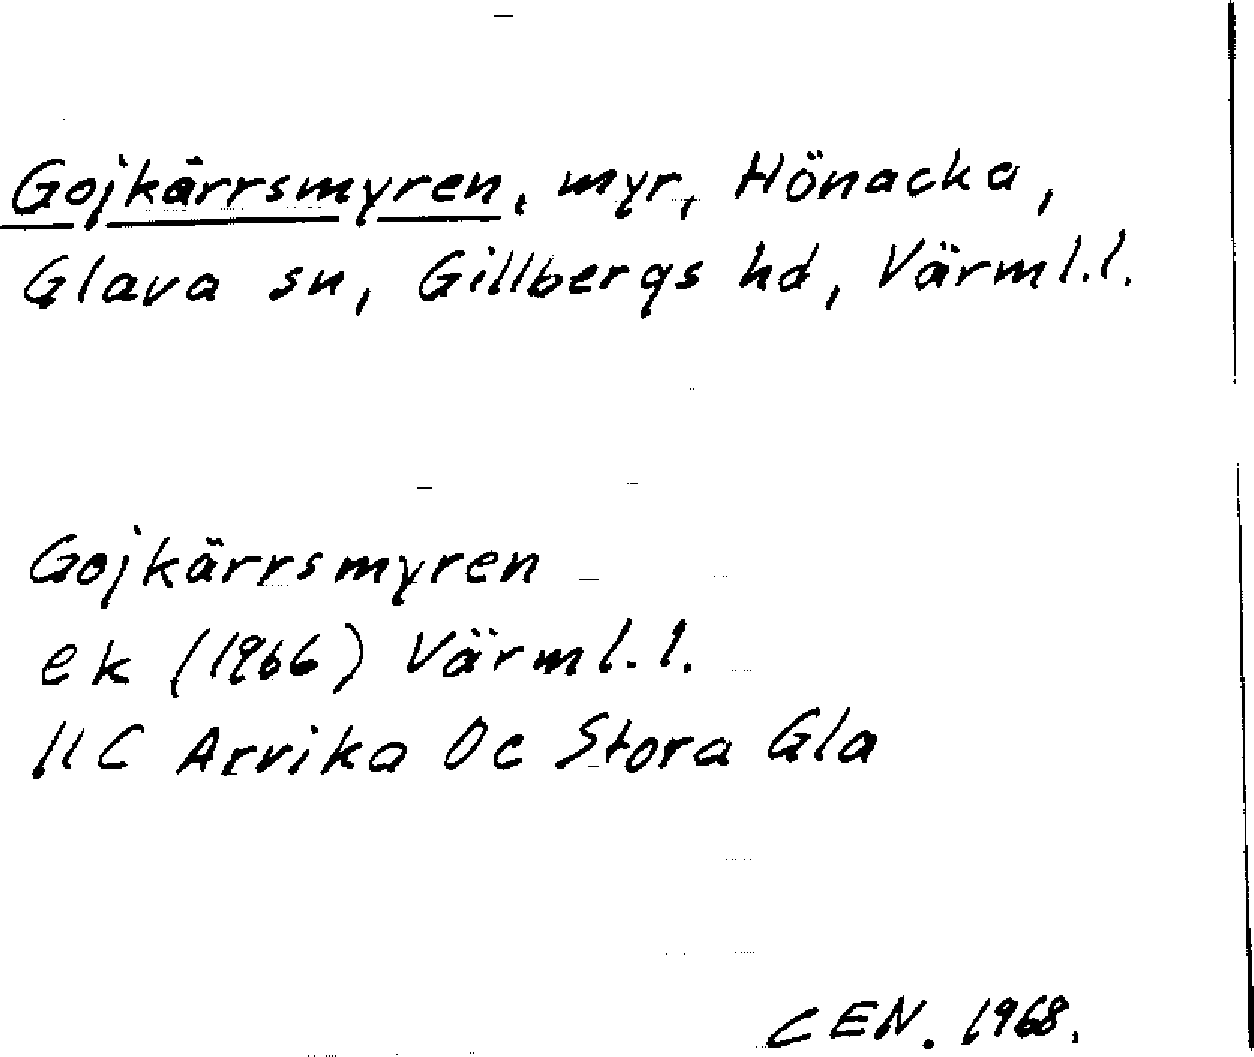 Gojkärrsmyren, myr, Hönacka,
Glava sn, Gillbergs hd, Värml.l.
Gojkärrsmyren
ek (1966) Värml.l.
11C Arvika 0c Stora Gla
CEN. 1968.